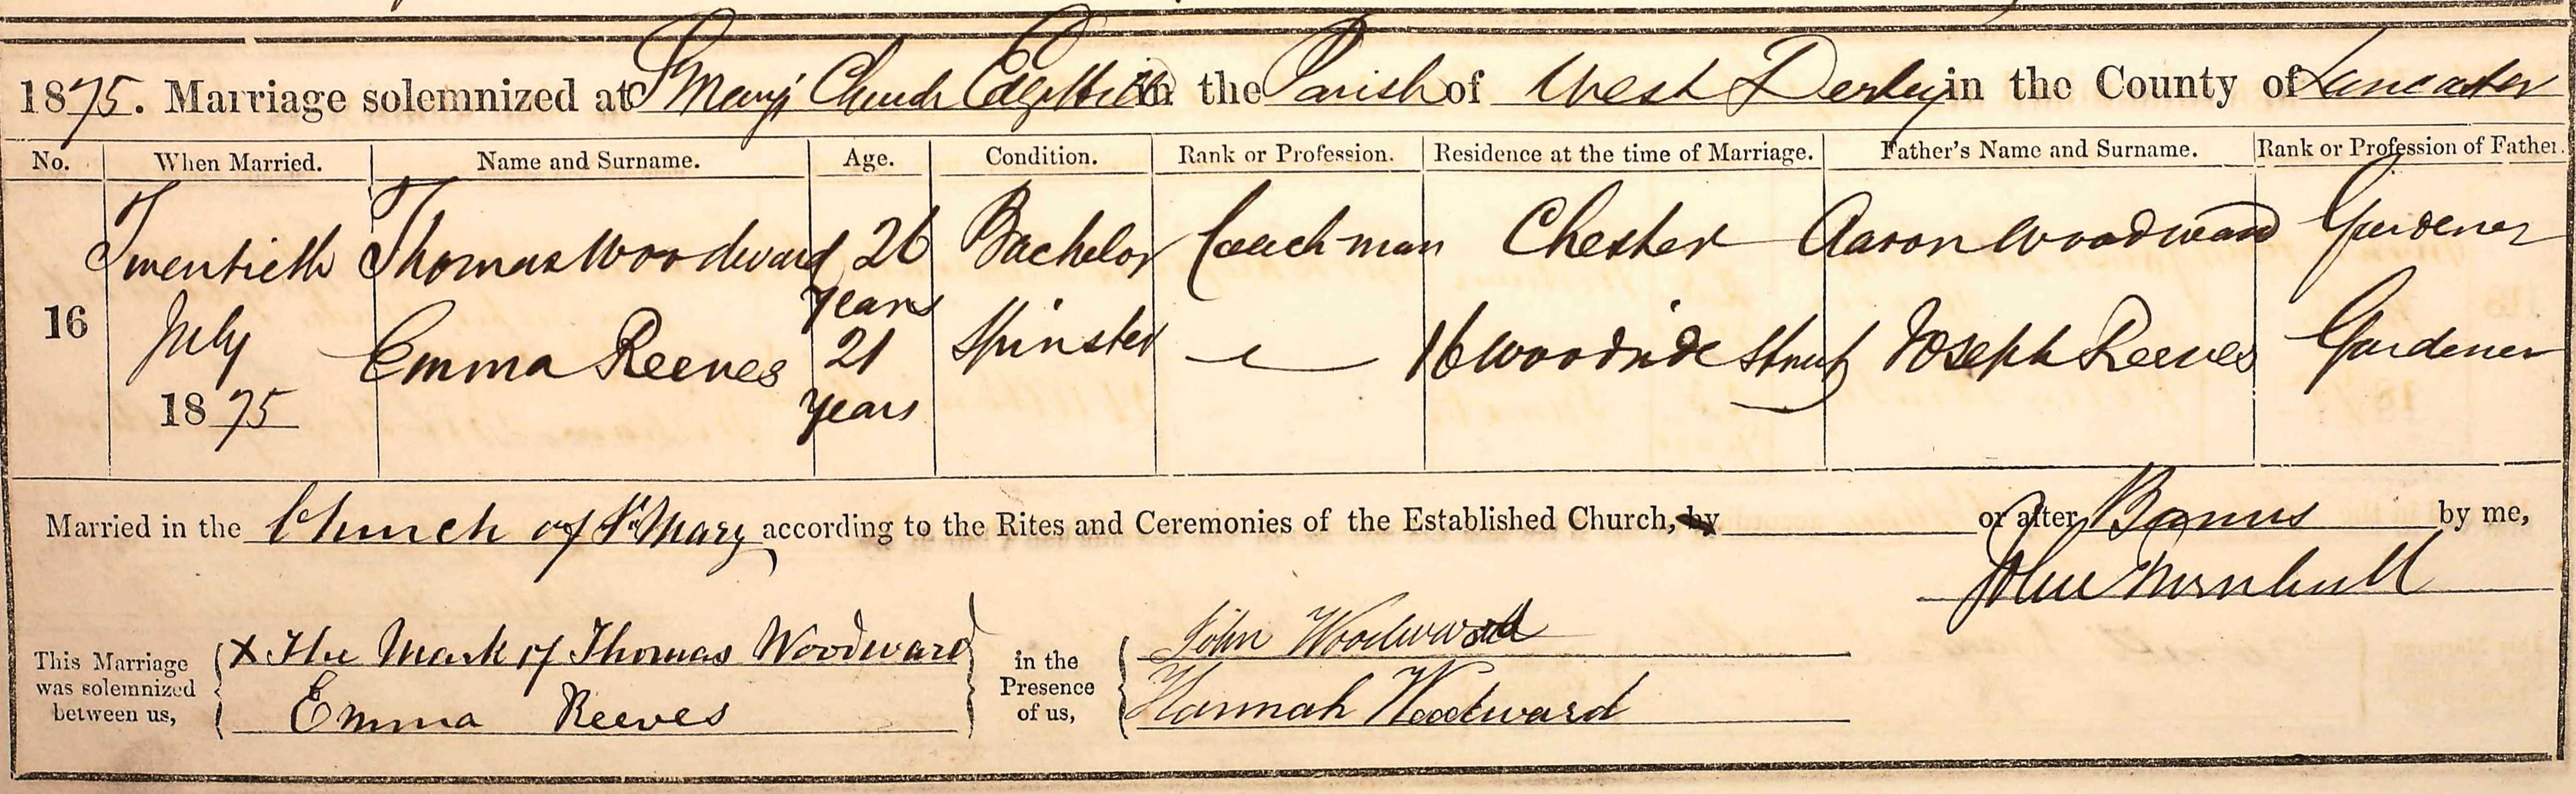 1875. Marriage solemnized at St Mary's Church Edge Hill in the Parish of West Derby in the County of Lancaster
No. When Married. Name and Surname. Age. Condition. Rank or Profession. Residence at the time of Marriage. Father's Name and Surname. Rank or Profession of Father.
Twentieth Thomas Woodward 26 Bachelor Coachman Chester Aaron Woodward Gardener
years
16 July Emma Reeves 21 Spinster — 16 Woodside Street Joseph Reeves Gardener
1875 years
Married in the Church of St Mary according to the Rites and Ceremonies of the Established Church, by or after Banns by me,
John
This Marriage was solemnized between us,
X The Mark of Thomas Woodward
Emma Reeves
in the Presence of us,
John Woodward
Hannah Woodward